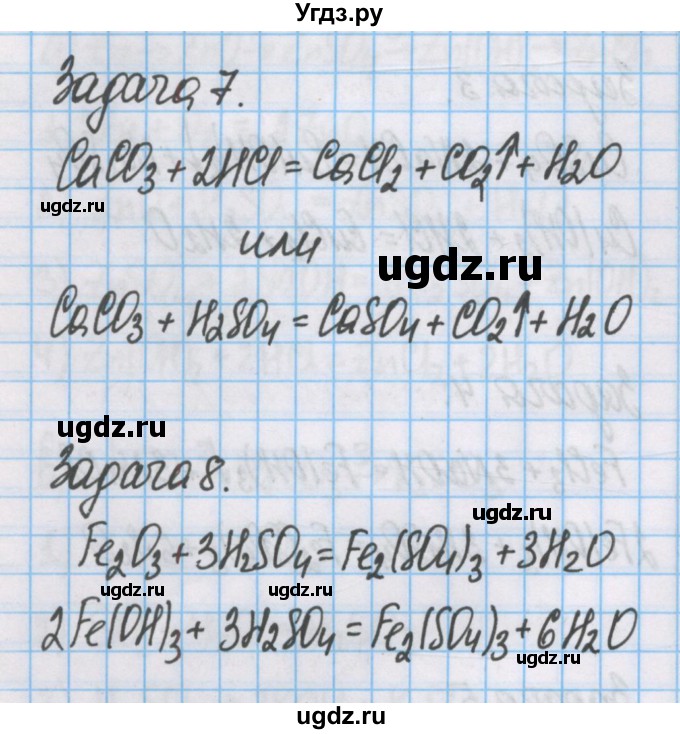 Угдз.ру
Задача 7.
CaCO3 + 2HCl = CaCl2 + CO2↑ + H2O
ugdz.ru
или
ugdz.ru
CaCO3 + H2SO4 = CaSO4 + CO2↑ + H2O
ugdz.ru
Задача 8.
ugdz.ru
Fe2O3 + 3H2SO4 = Fe2(SO4)3 + 3H2O
ugdz.ru
ugdz.ru
2Fe(OH)3 + 3H2SO4 = Fe2(SO4)3 + 6H2O
ugdz.ru
ugdz.ru